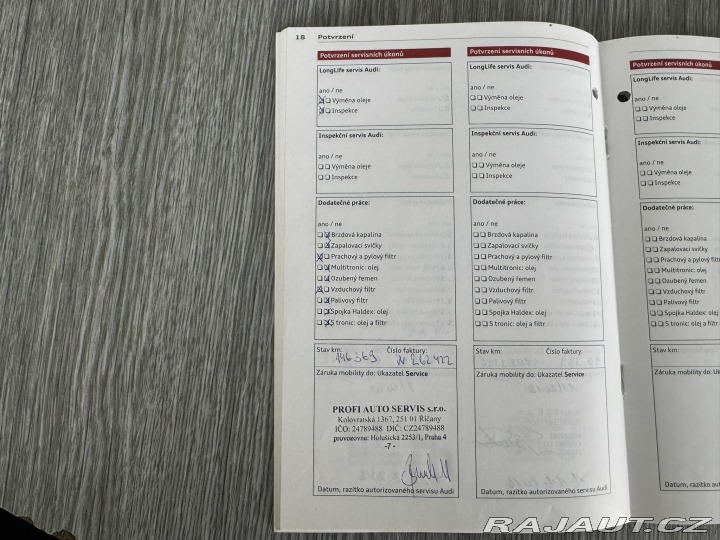 18 Potvrzení
Potvrzení servisních úkonů
LongLife servis Audi:
ano / ne
Výměna oleje
Inspekce
Inspekční servis Audi:
ano / ne
Výměna oleje
Inspekce
Dodatečné práce:
ano / ne
Brzdová kapalina
Zapalovací svíčky
Prachový a pylový filtr
Multitronic: olej
Ozubený řemen
Vzduchový filtr
Palivový filtr
Spojka Haldex: olej
S tronic: olej a filtr
Stav km: Číslo faktury:
146369 262422
Záruka mobility do: Ukazatel Service
PROFI AUTO SERVIS s.r.o.
Kolovratská 1367, 251 01 Říčany
IČO: 24789488 DIČ: CZ24789488
provozovna: Holušická 2253/1, Praha 4
-7-
Datum, razítko autorizovaného servisu Audi
Potvrzení servisních úkonů
LongLife servis Audi:
ano / ne
Výměna oleje
Inspekce
Inspekční servis Audi:
ano / ne
Výměna oleje
Inspekce
Dodatečné práce:
ano / ne
Brzdová kapalina
Zapalovací svíčky
Prachový a pylový filtr
Multitronic: olej
Ozubený řemen
Vzduchový filtr
Palivový filtr
Spojka Haldex: olej
S tronic: olej a filtr
Stav km: Číslo faktury:
Záruka mobility do: Ukazatel Service
Datum, razítko autorizovaného servisu Audi
Potvrzení servisních úkonů
LongLife servis Audi:
ano / ne
Výměna oleje
Inspekce
Inspekční servis Audi:
ano / ne
Výměna oleje
Inspekce
Dodatečné práce:
ano / ne
Brzdová kapalina
Zapalovací svíčky
Prachový a pylový
Multitronic: olej
Ozubený řemen
Vzduchový filtr
Palivový filtr
Spojka Haldex: olej
S tronic: olej a filtr
Stav km:
Záruka mobility do:
Datum, razítko
RAJAUT.CZ